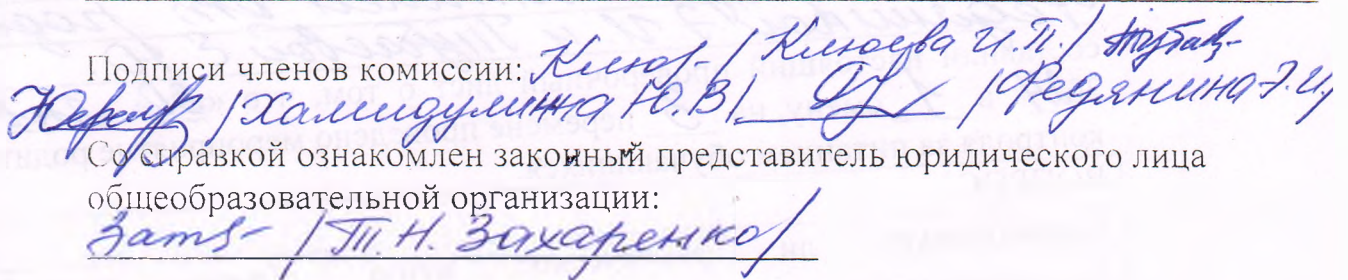 Подписи членов комиссии: Клюе- / Клюева И.П. /
/ Хамидулина Ю.В / / Федянина Э.И,
Со справкой ознакомлен законный представитель юридического лица
общеобразовательной организации:
/ Т.Н. Захаренко /